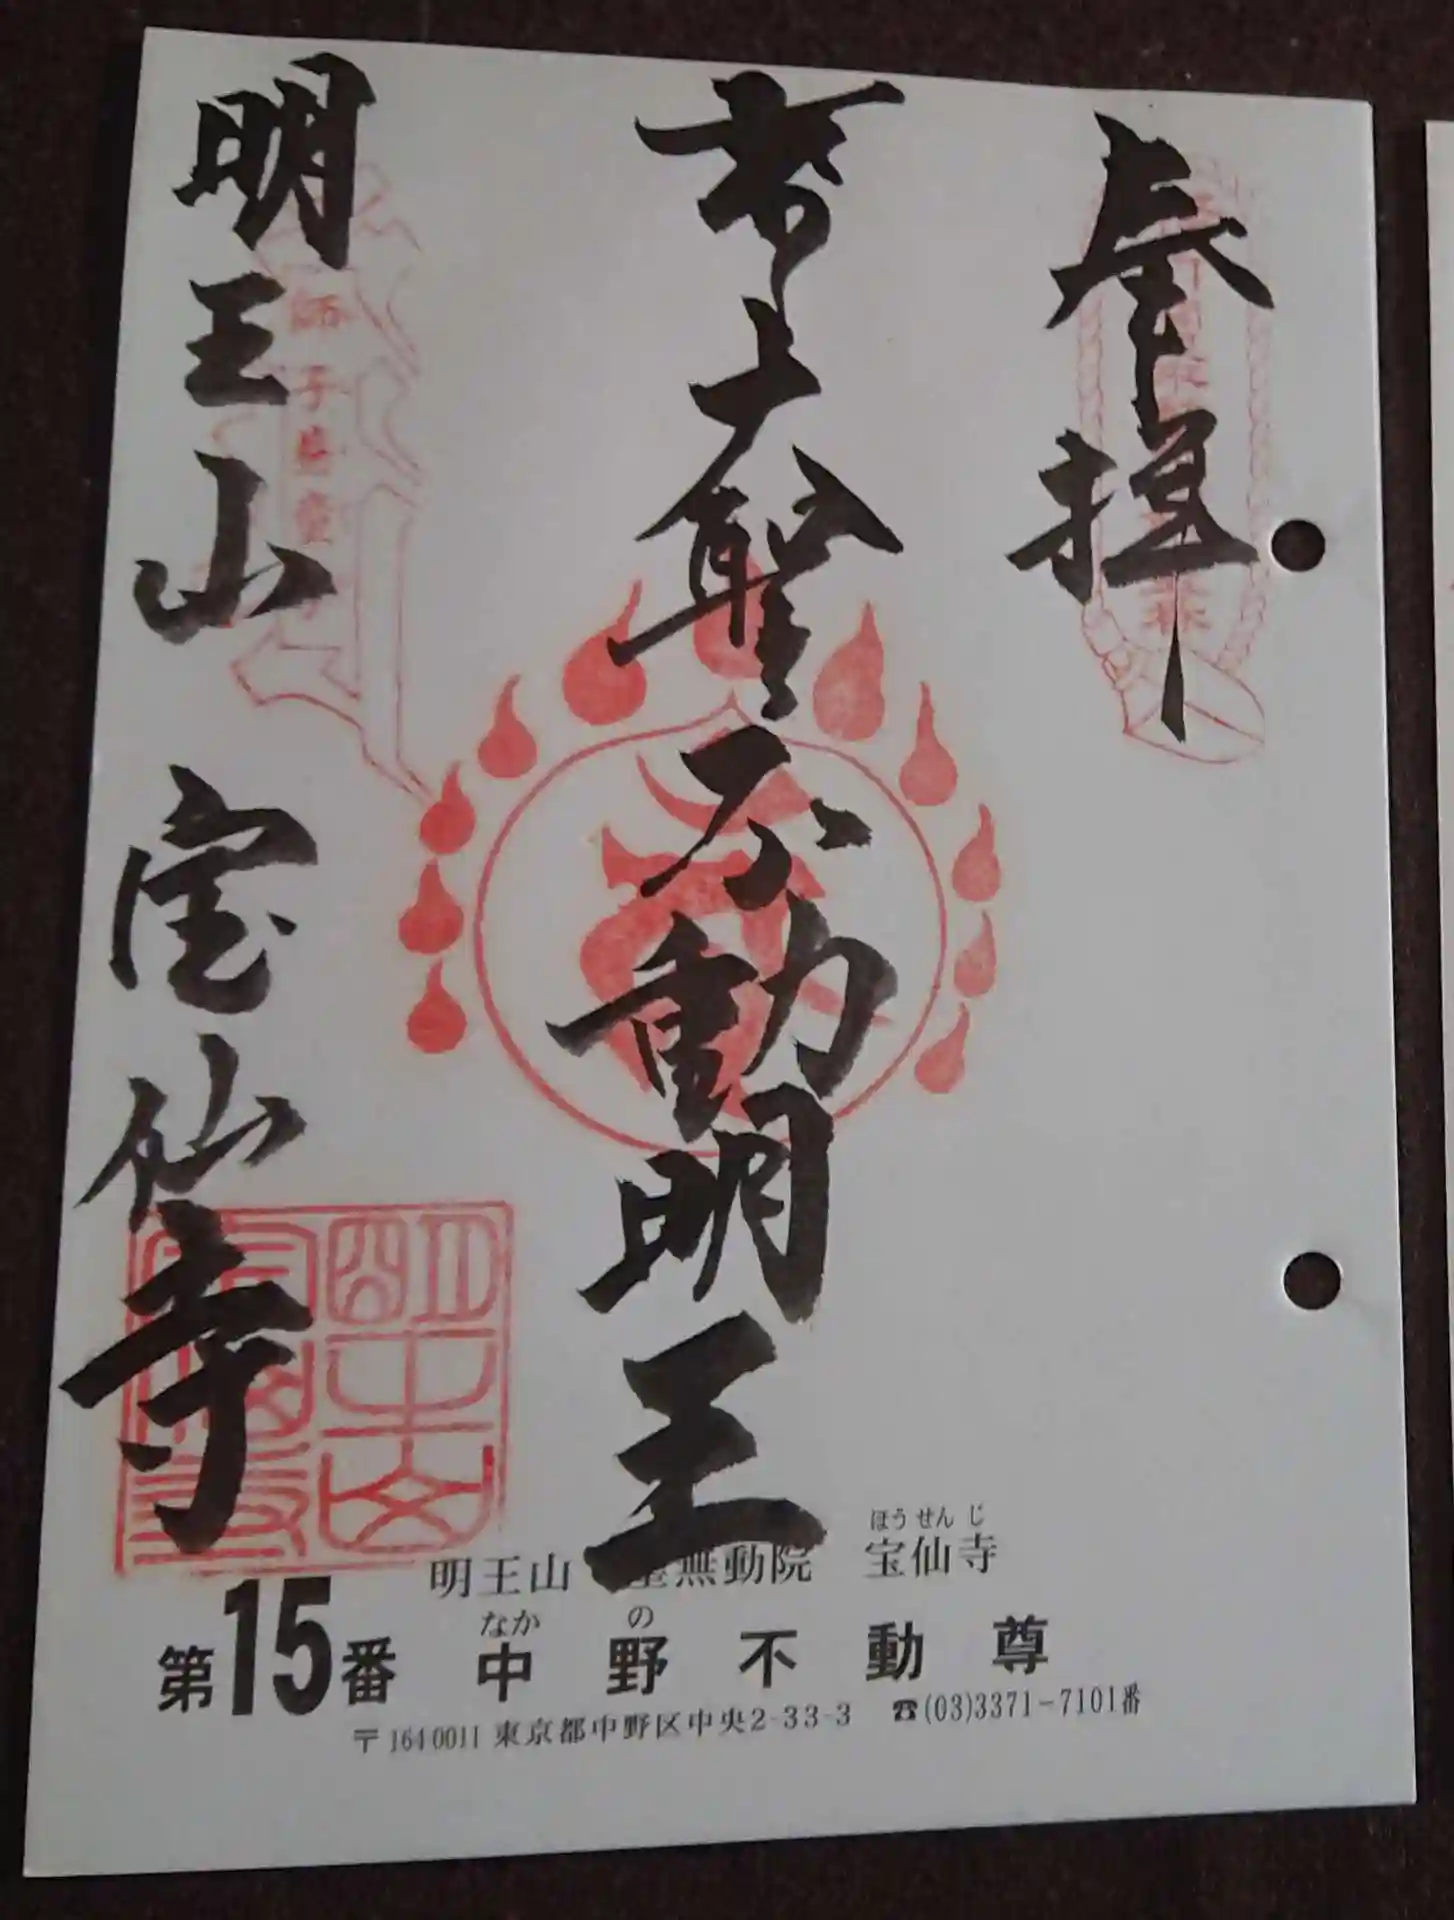 参拝
大聖不動明王
明王山 宝仙寺
ほうせんじ
明王山 無動院 宝仙寺
なか の
第15番 中野不動尊
〒164-0011 東京都中野区中央2-33-3 ☎(03)3371-7101番